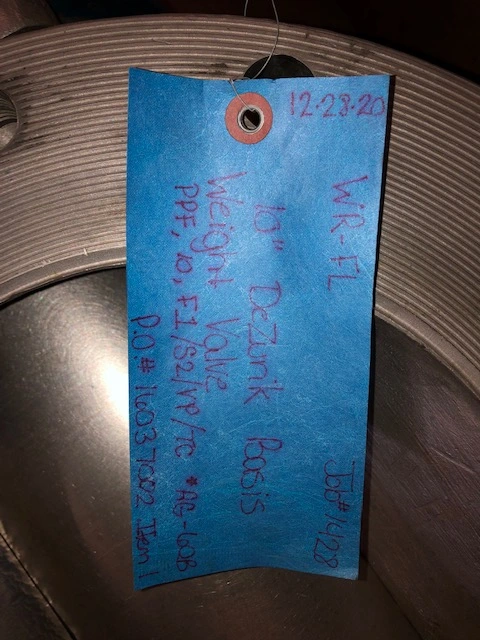 12-23-20
WR-FL Job# 14128
10" DeZurik Basis
Weight Valve
PPF, 10, F1/S2/VP/TC *AG-60B
P.O.# 16037002 Item 1